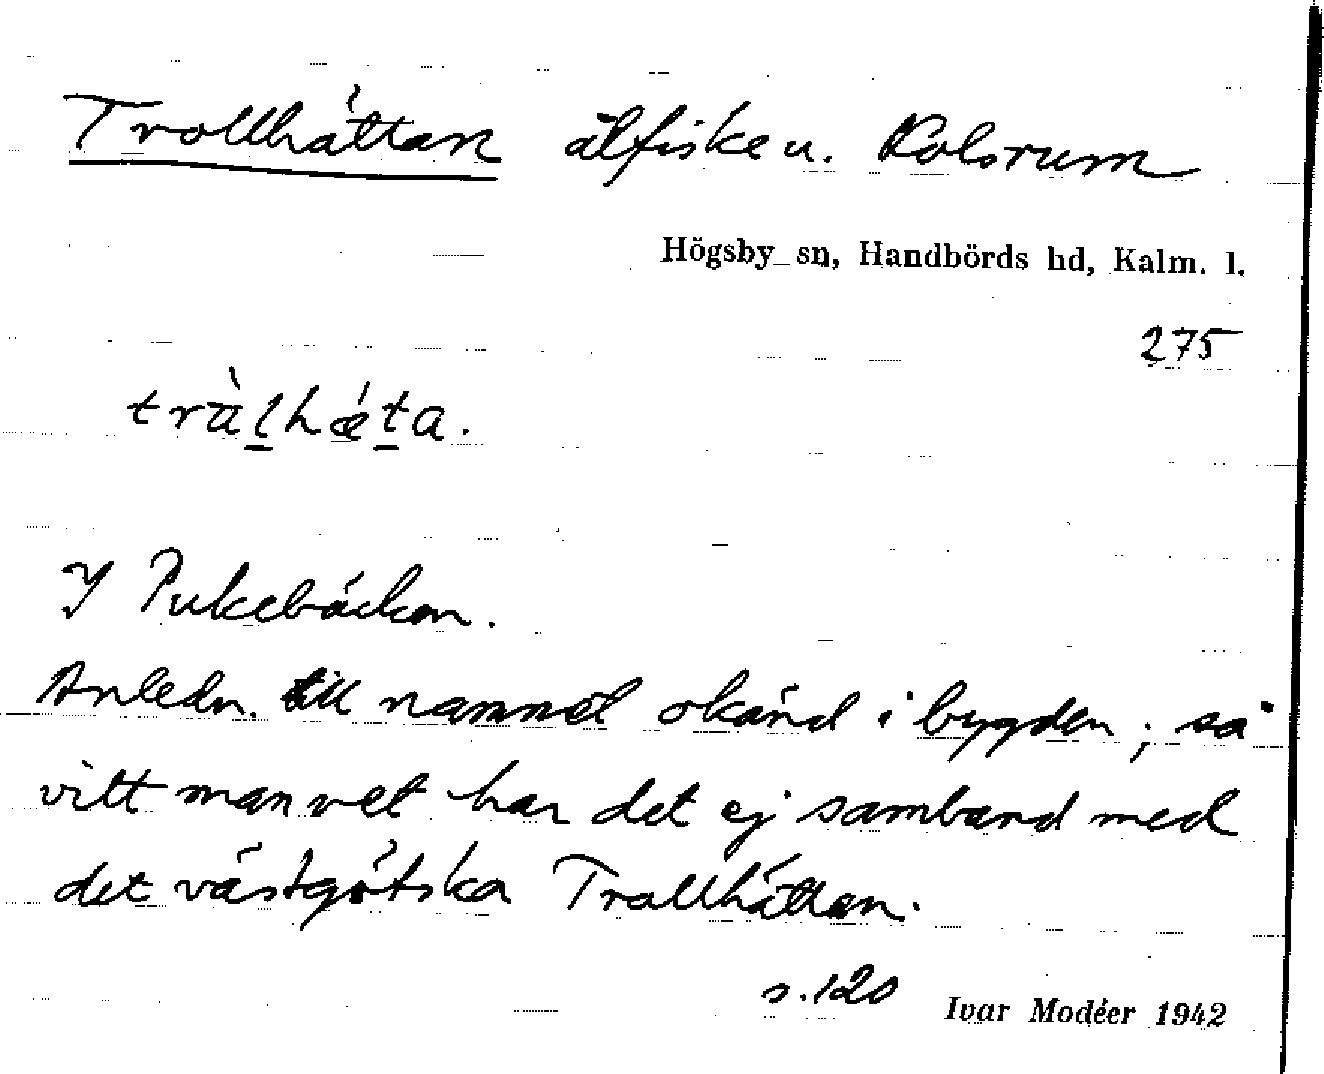 Trollhättan ålfiske u. Kolsrum
Högsby sn, Handbörds hd, Kalm. l.
275
tràlhǽta.
I Pukebäcken.
Anledn. till namnet okänd i bygden; så
vitt man vet har det ej samband med
det västgötska Trollhättan.
s.120 Ivar Modéer 1942